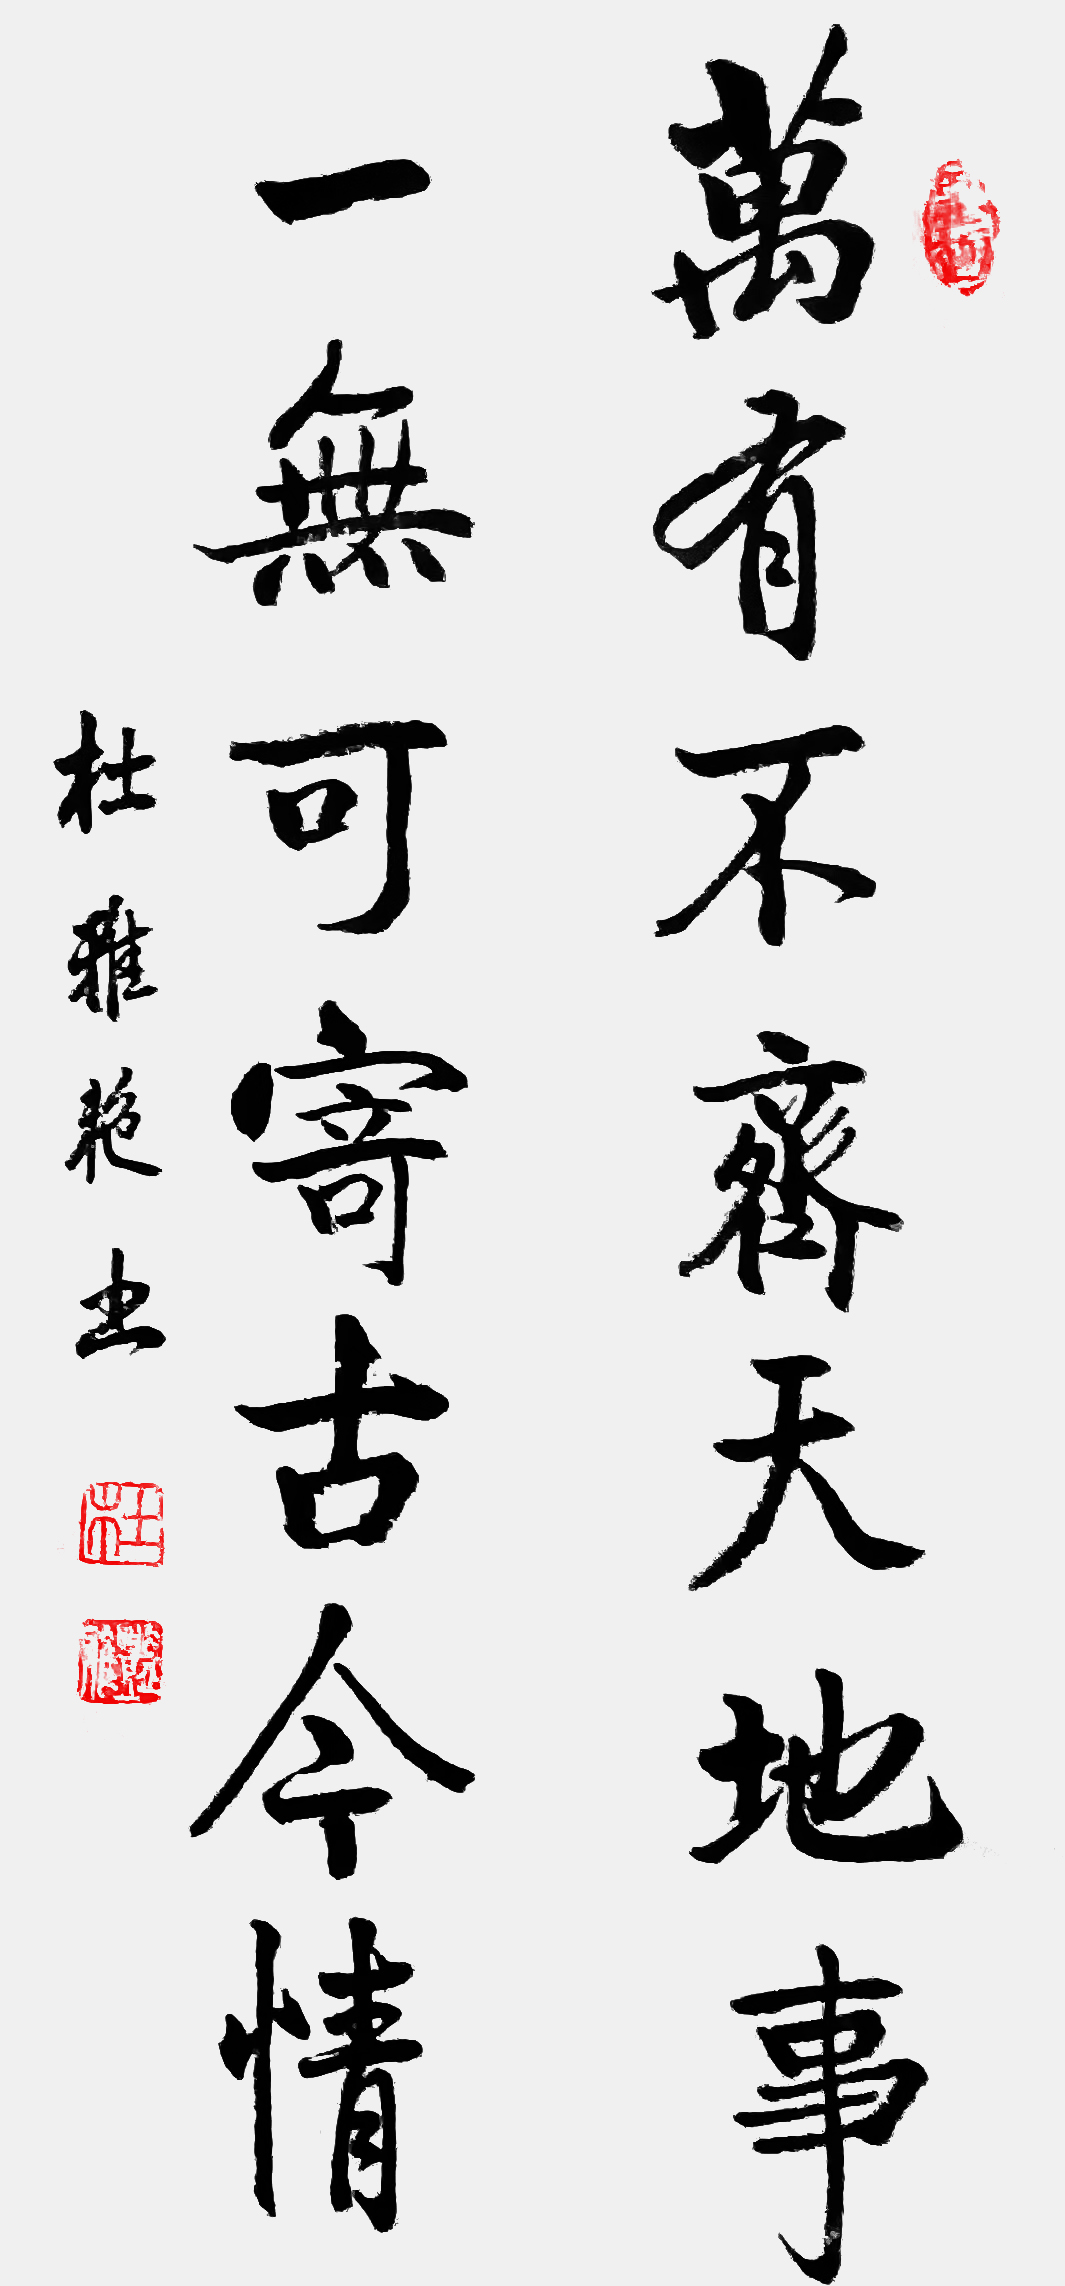 萬有不齊天地事
一無可寄古今情
杜雅艳书
杜